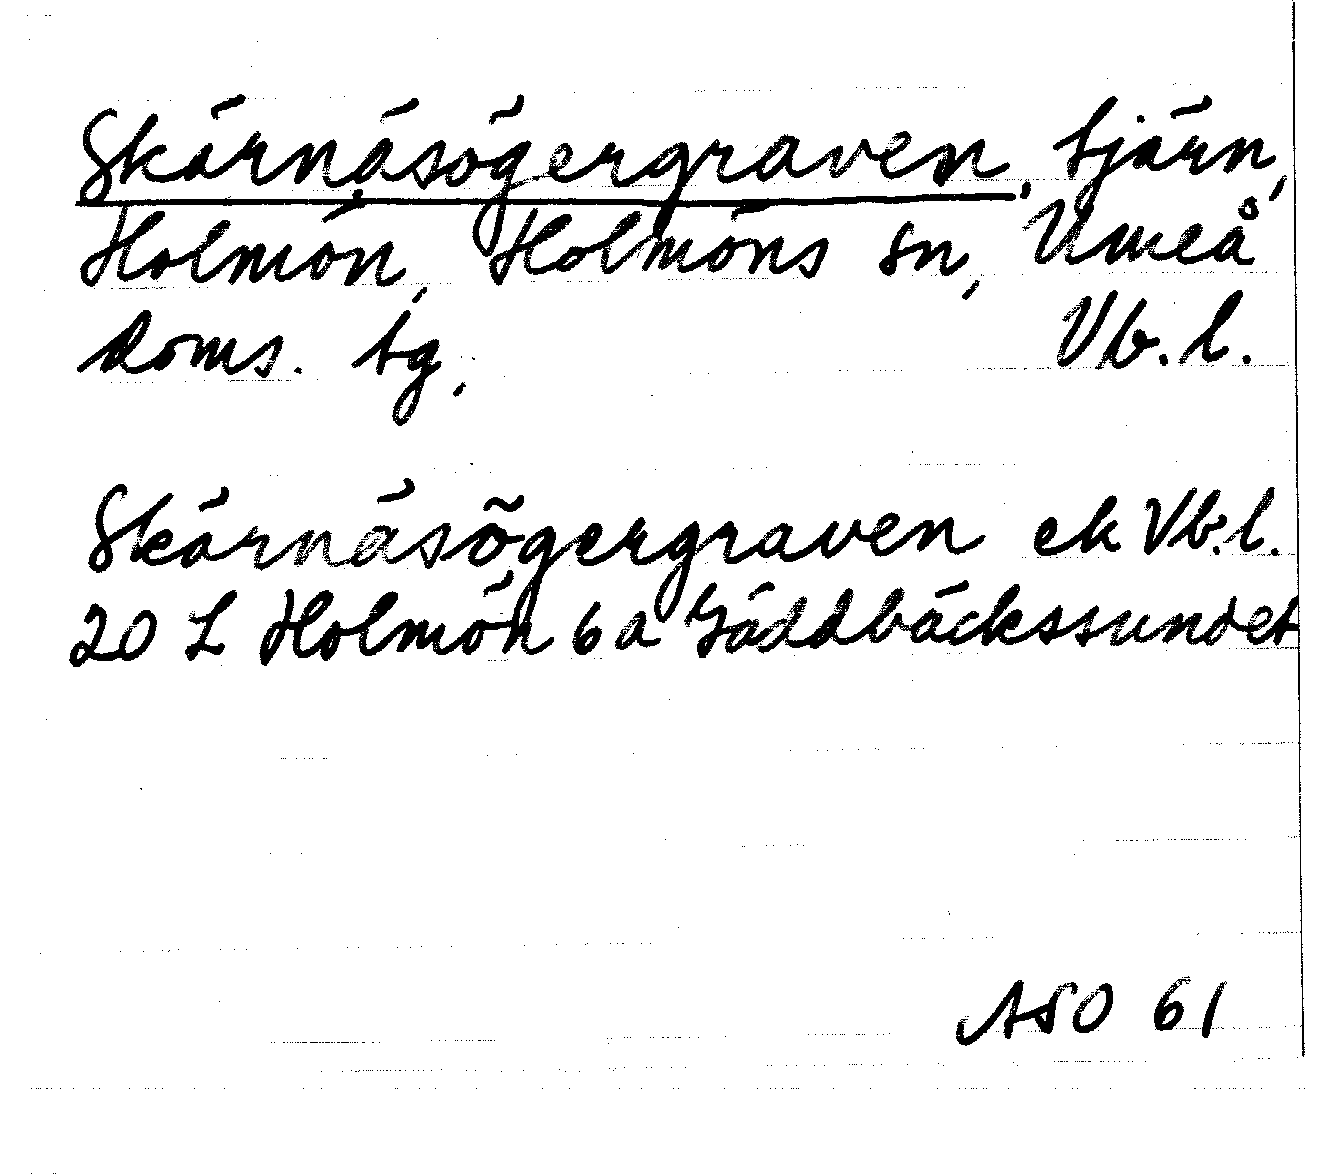 Skärnäsögergraven, tjärn,
Holmön, Holmöns sn, Umeå
doms. tg, Vb.l.
Skärnäsögergraven ek Vb.l.
20 L Holmön 6a Gäddbäckssundet
ASO 61